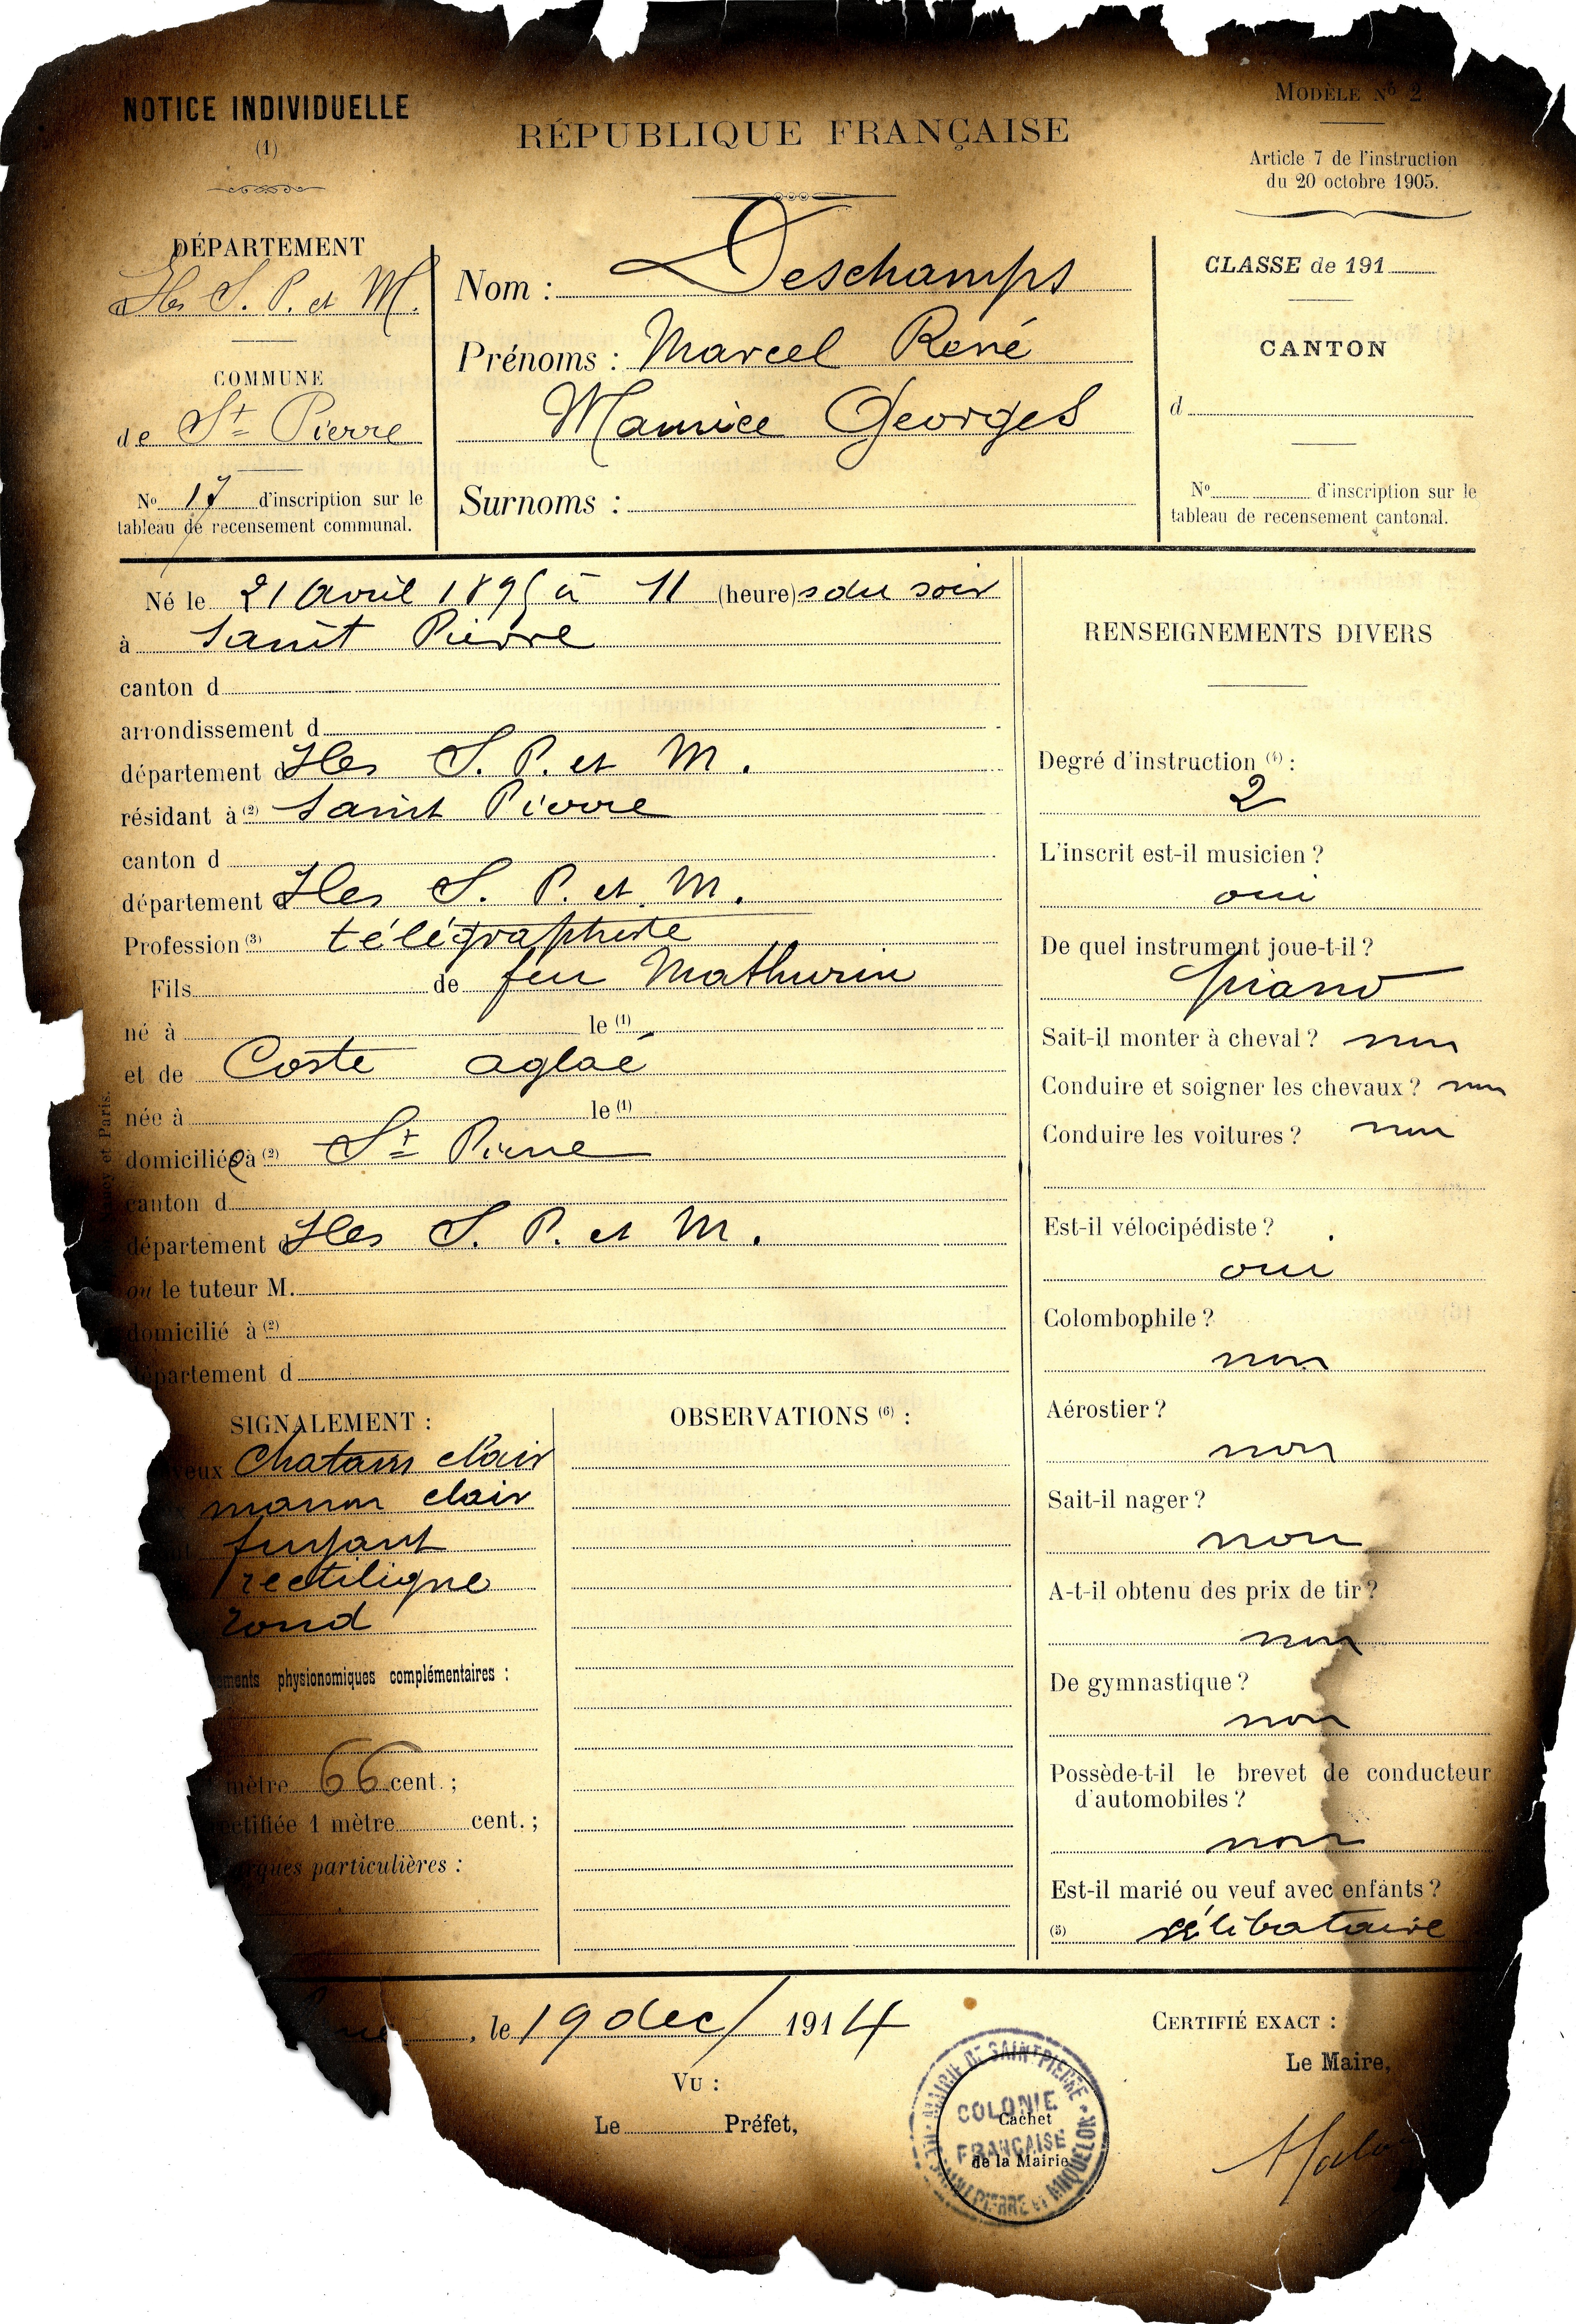 NOTICE INDIVIDUELLE
(1)
RÉPUBLIQUE FRANÇAISE
MODÈLE Nº 2
Article 7 de l'instruction
du 20 octobre 1905.
DÉPARTEMENT
Iles S. P. et M.
COMMUNE
de St Pierre
No 17 d'inscription sur le
tableau de recensement communal.
Nom : Deschamps
Prénoms : Marcel René
Maurice Georges
Surnoms :
CLASSE de 191
CANTON
d
No d'inscription sur le
tableau de recensement cantonal.
Né le 21 Avril 1895 à 11 (heure)s du soir
à Saint Pierre
canton d
arrondissement d
département d Iles S. P. et M.
résidant à (2) Saint Pierre
canton d
département d Iles S. P. et M.
Profession (3) télégraphiste
Fils de feu Mathurin
né à le (1)
et de Coste aglaé
née à le (1)
domiciliée à (2) St Pierre
canton d
département d Iles S. P. et M.
ou le tuteur M.
domicilié à (2)
département d
et Paris.
SIGNALEMENT :
Chatain clair
marron clair
fuyant
rectiligne
rond
physionomiques complémentaires :
mètre 66 cent. ;
1 mètre cent. ;
particulières :
OBSERVATIONS (6) :
RENSEIGNEMENTS DIVERS
Degré d'instruction (4) :
2
L'inscrit est-il musicien ?
oui
De quel instrument joue-t-il ?
piano
Sait-il monter à cheval ? non
Conduire et soigner les chevaux ? non
Conduire les voitures ? non
Est-il vélocipédiste ?
oui
Colombophile ?
non
Aérostier ?
non
Sait-il nager ?
non
A-t-il obtenu des prix de tir ?
non
De gymnastique ?
non
Possède-t-il le brevet de conducteur
d'automobiles ?
non
Est-il marié ou veuf avec enfants ?
(5) célibataire
, le 19 dec/ 1914
VU :
Le Préfet,
MAIRIE DE SAINT PIERRE
COLONIE
Cachet
FRANÇAISE
de la Mairie
SAINT PIERRE et MIQUELON
CERTIFIÉ EXACT :
Le Maire,